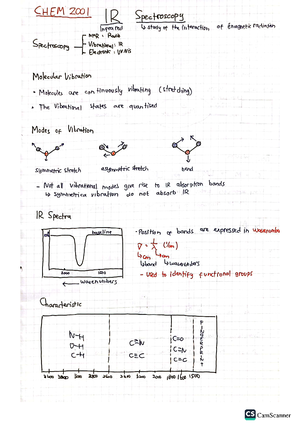 CHEM 2001
IR Spectroscopy
Infrared
↳ study of the interaction of
Spectroscopy
Vibrational: IR
Electronic: UV-VIS
Molecular Vibration
• Molecules are continuously vibrating (stretching)
• The vibrational states are quantised
Modes of Vibration
symmetric stretch
asymmetric stretch
bend
- Not all vibrational modes give rise to IR absorption bands
↳ symmetrica vibration do not absorb IR
IR Spectra
baseline
← wavenumbers
• Position of bands are expressed in
- Used to identify functional groups
Characteristic
N-H
O-H
C-H
C≡N
C≡C
C=O
C=N
C=C
FINGERPRINT
CS CamScanner